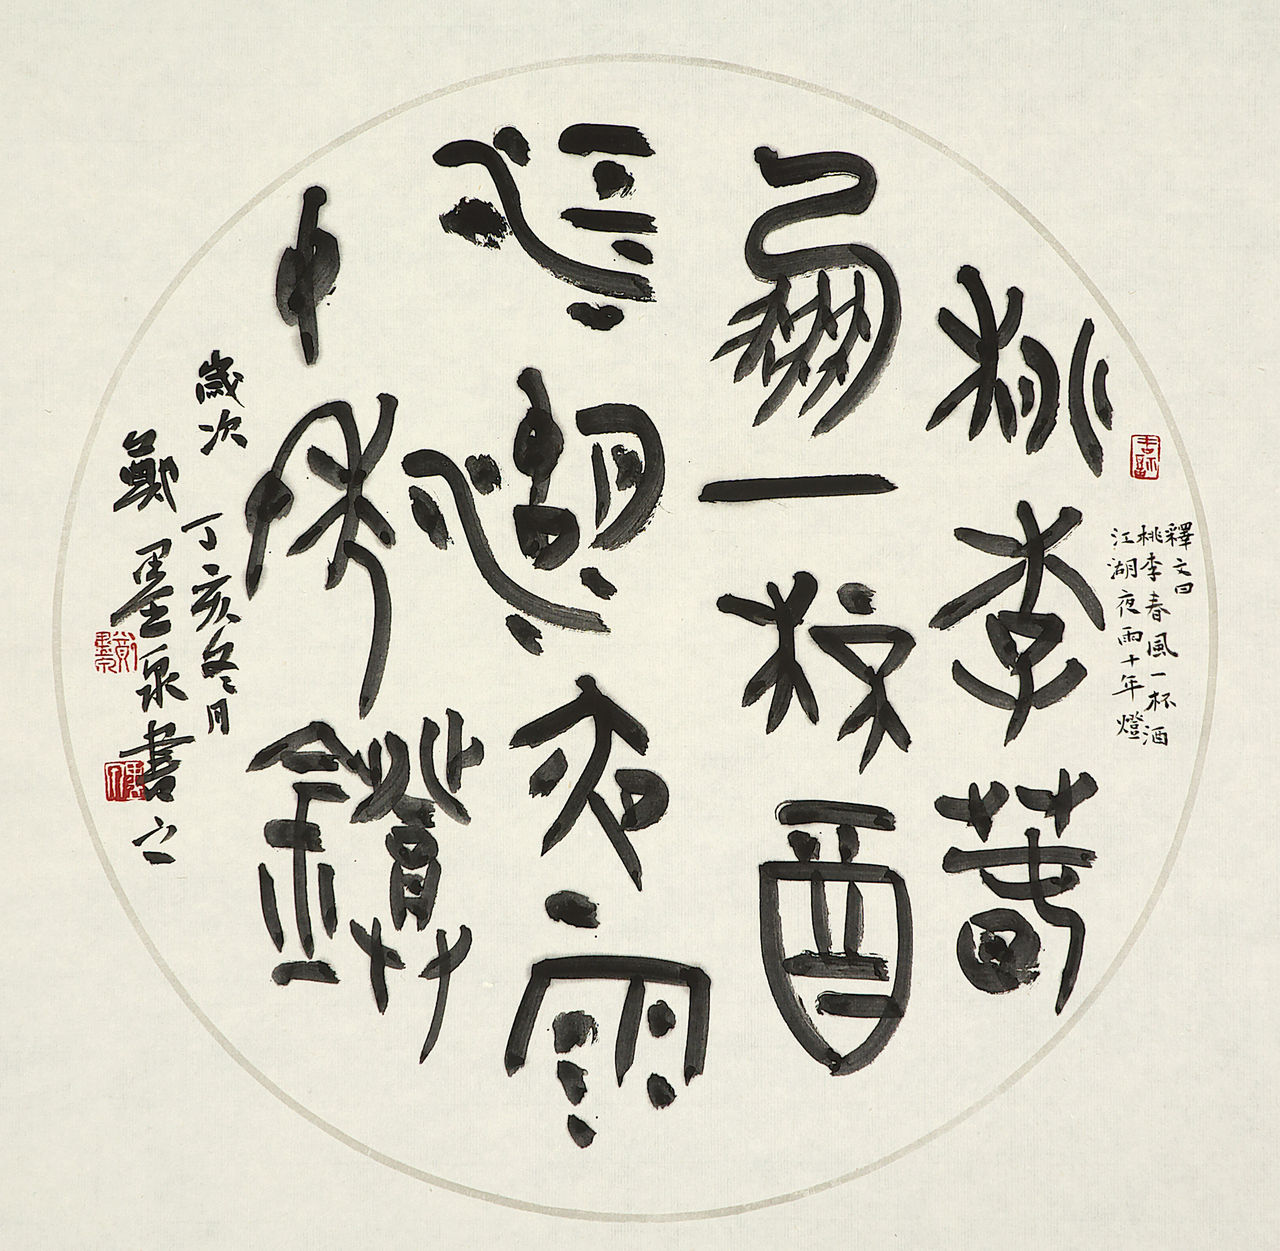 釋文曰
桃李春風一杯酒
江湖夜雨十年燈
桃李春
風一杯酒
江湖夜雨
十年燈
歲次丁亥冬月
鄭墨泉書之